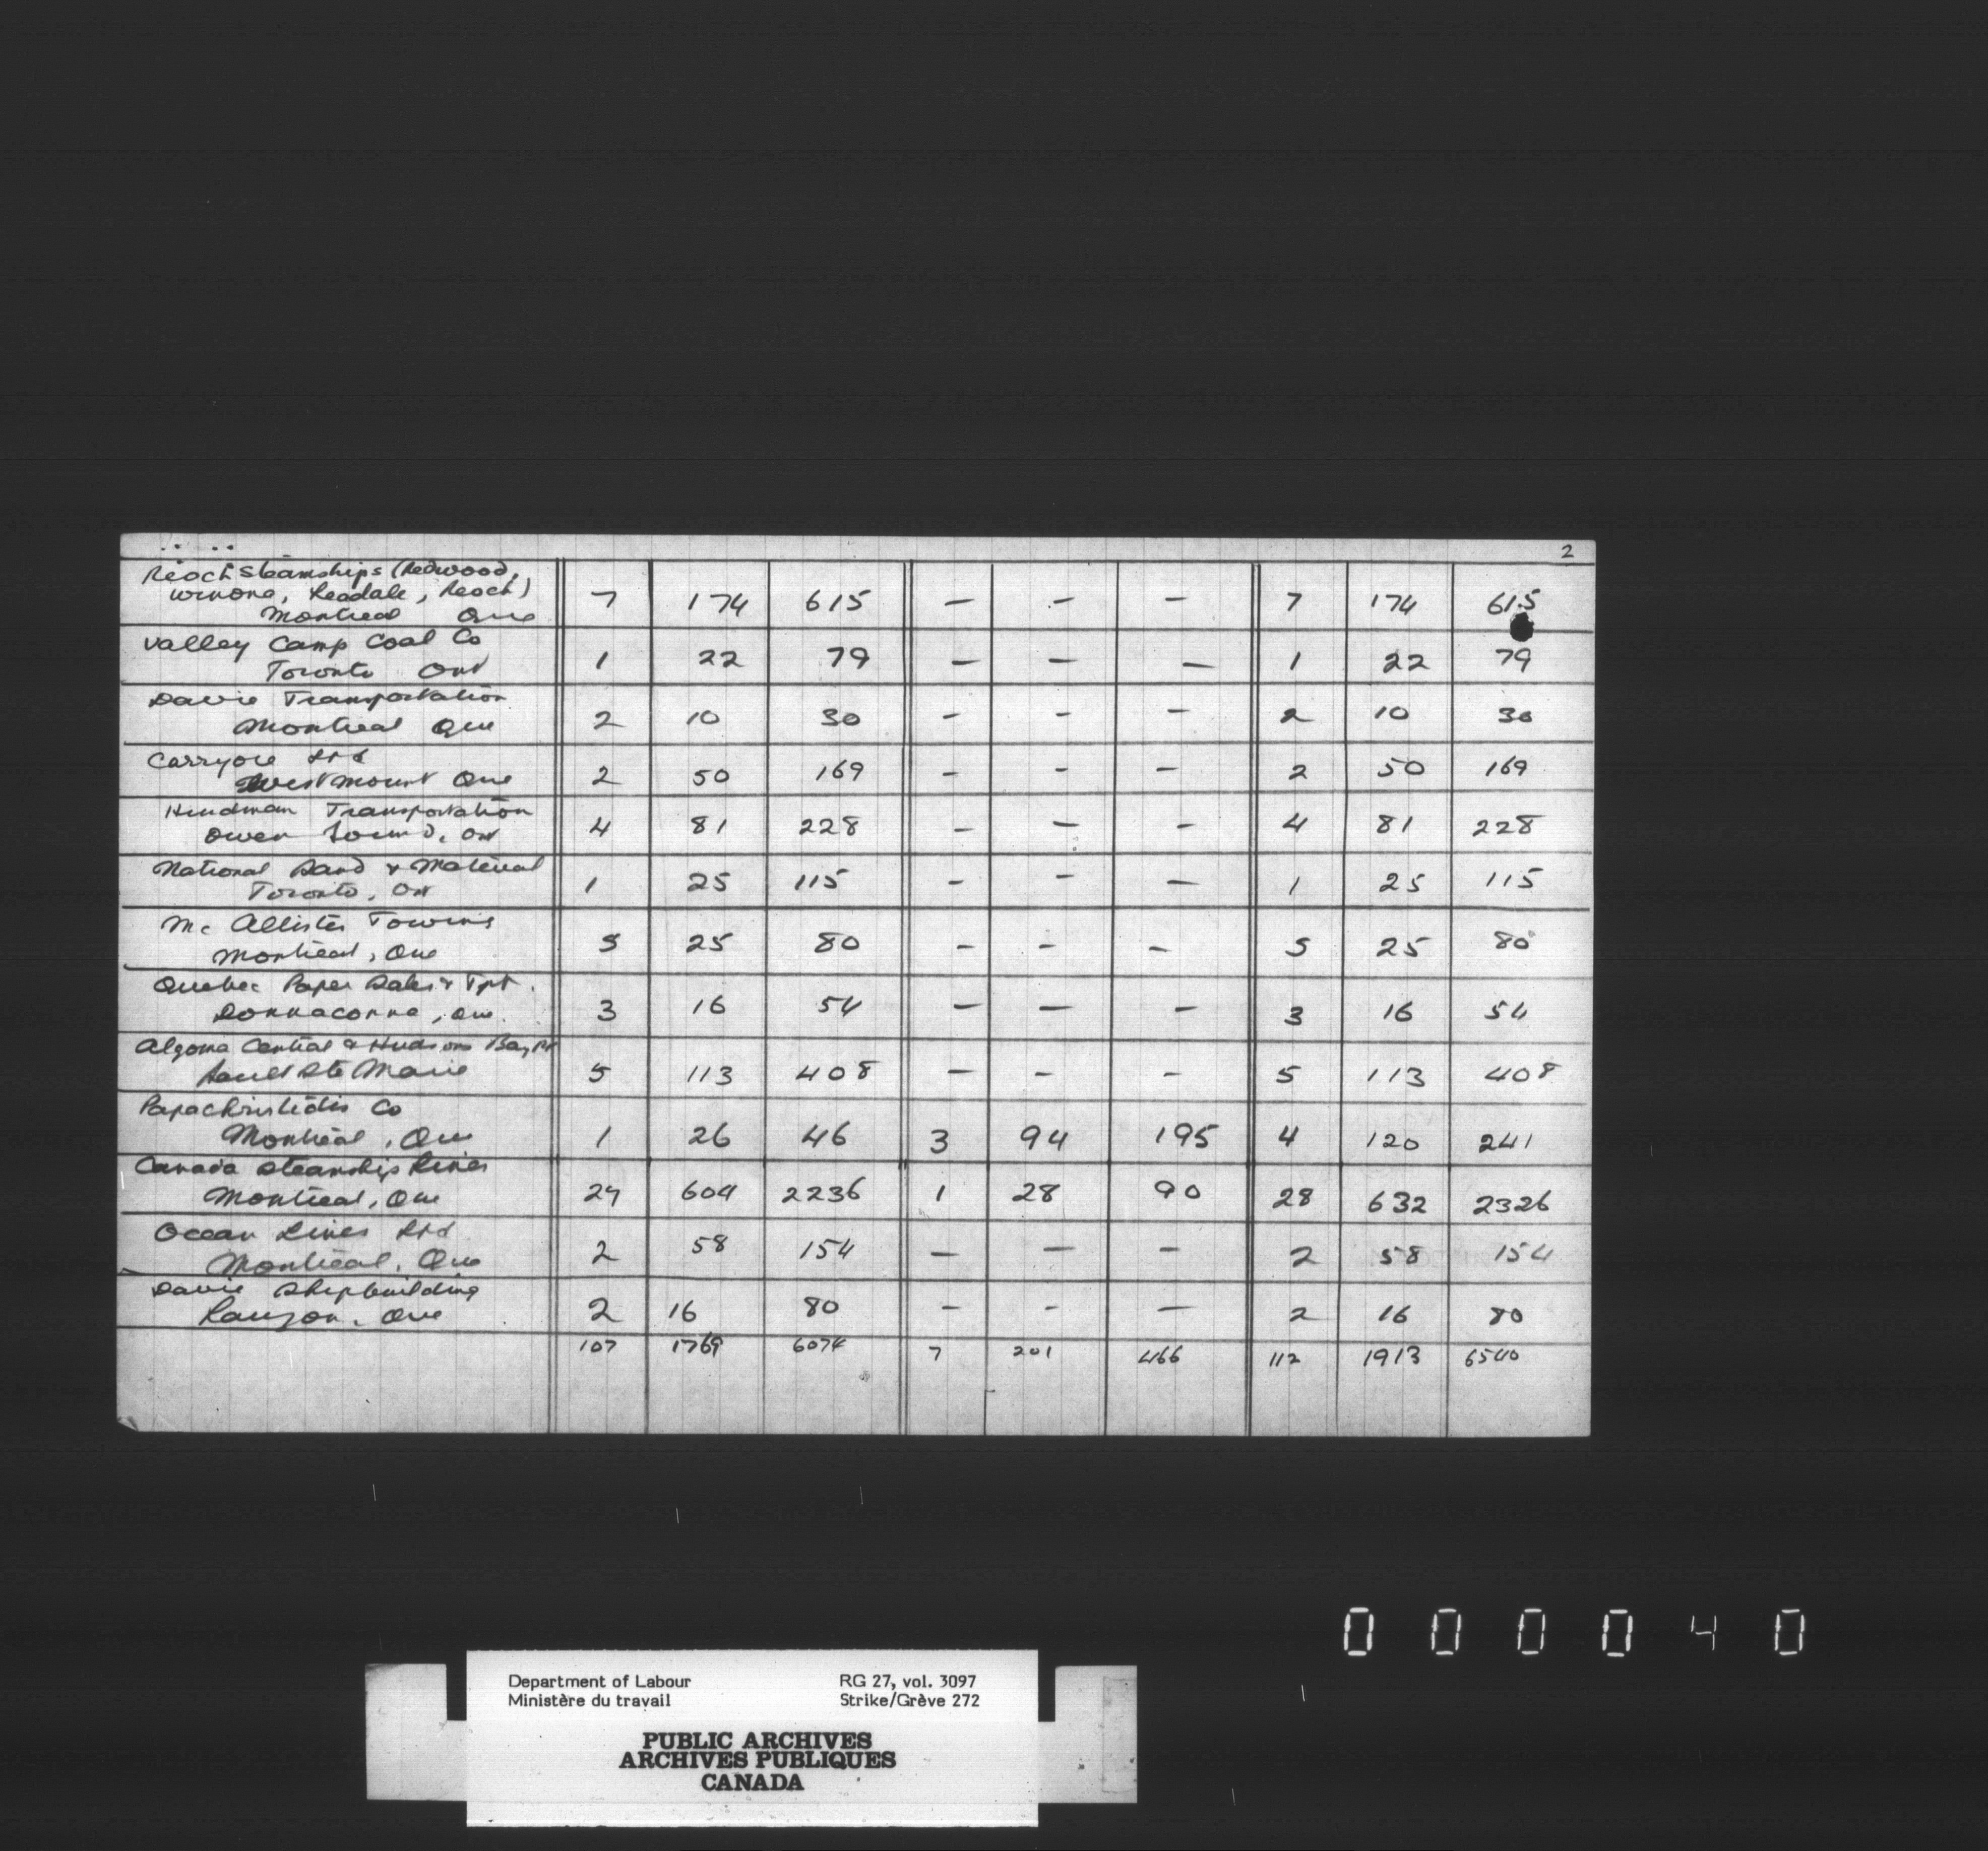 2
Reoch Steamships (Redwood,
Winona, Readale, Reoch)
Montreal Que 7 174 615 — — — 7 174 615
Valley Camp Coal Co
Toronto Ont 1 22 79 — — — 1 22 79
Davie Transportation
Montreal Que 2 10 30 - - - 2 10 30
Carryore Ltd
Westmount Que 2 50 169 - - - 2 50 169
Hindman Transportation
Owen Sound, Ont 4 81 228 - - - 4 81 228
National Sand & Material
Toronto, Ont 1 25 115 - - - 1 25 115
Mc Allister Towing
Montreal, Que 5 25 80 - - - 5 25 80
Quebec Paper Sales & Tpt.
Donnacona, Que. 3 16 54 — — — 3 16 54
Algoma Central & Hudsons Bay Ry
Sault Ste Marie 5 113 408 - - - 5 113 408
Papachristidis Co
Montreal, Que 1 26 46 3 94 195 4 120 241
Canada Steamship Lines
Montreal, Que 27 604 2236 1 28 90 28 632 2326
Ocean Lines Ltd
Montreal, Que 2 58 154 — — - 2 58 154
Davie Shipbuilding
Lauzon, Que 2 16 80 - - — 2 16 80
107 1769 6074 7 201 466 112 1913 6540
000040
Department of Labour RG 27, vol. 3097
Ministère du travail Strike/Grève 272
PUBLIC ARCHIVES
ARCHIVES PUBLIQUES
CANADA